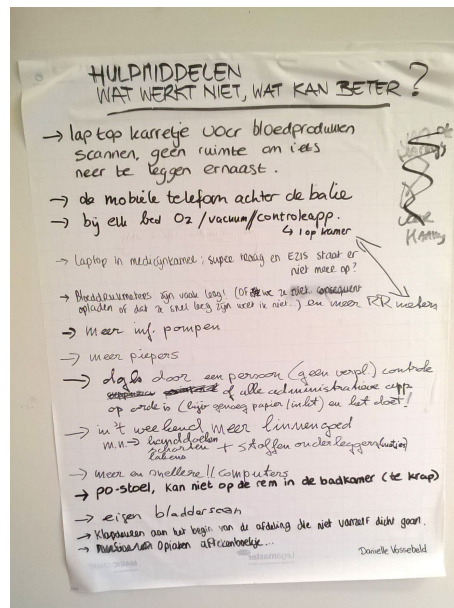 HULPMIDDELEN
WAT WERKT NIET, WAT KAN BETER ?
→ laptop karretje voor bloedprodukten
scannen, geen ruimte om iets
neer te leggen ernaast.
→ de mobiele telefoon achter de balie
→ bij elk bed O2/vacuum/controleapp.
↳ 1 op kamer
→ Laptop in medicijnkamer: super traag en EZIS staat er
niet meer op?
→ Bloeddrukmeters zijn vaak leeg! (Of we ze niet consequent
opladen of dat ze snel leeg zijn weet ik niet..) en meer RR meters
→ meer inf. pompen
→ meer piepers
→ dgls door een persoon (geen verpl.) controle
of alle administratieve app
op orde is (bijv genoeg papier/inkt) en het doet!
→ in 't weekend meer linnengoed
m.n. → handdoeken
schorten
lakens
+ stoffen onderleggers (matjes)
→ meer en snellere!! computers
→ po-stoel, kan niet op de rem in de badkamer (te krap)
→ eigen bladderscan
→ Klapdeuren aan het begin van de afdeling die niet vanzelf dicht gaan.
→ Opiaten aftekenboekje...
Danielle Vossebeld
Legamaster